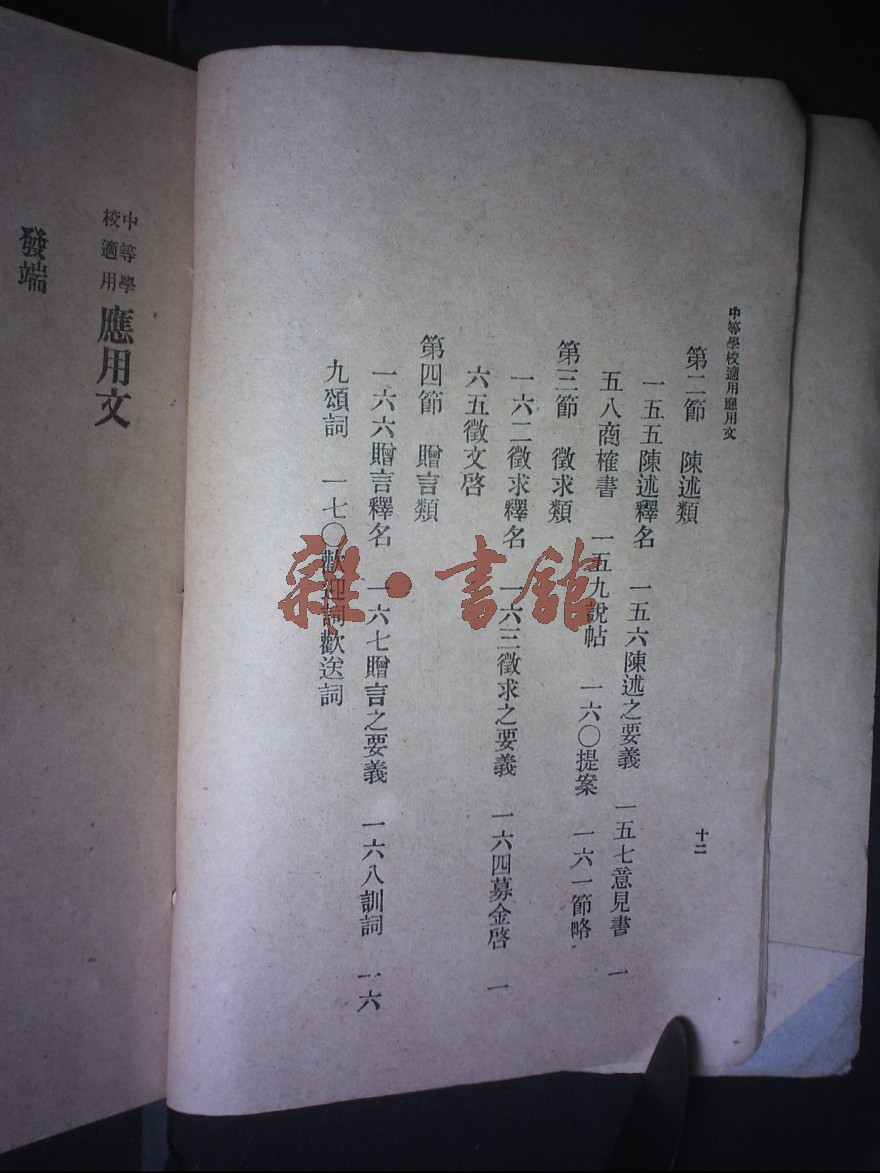 中等學校適用應用文
十二
第二節　陳述類
一五五陳述釋名　一五六陳述之要義　一五七意見書　一
五八商榷書　一五九說帖　一六〇提案　一六一節略
第三節　徵求類
一六二徵求釋名　一六三徵求之要義　一六四募金啓　一
六五徵文啓
第四節　贈言類
一六六贈言釋名　一六七贈言之要義　一六八訓詞　一六
九頌詞　一七〇歡迎詞歡送詞
中等學校適用　應用文
發端
雜·書館